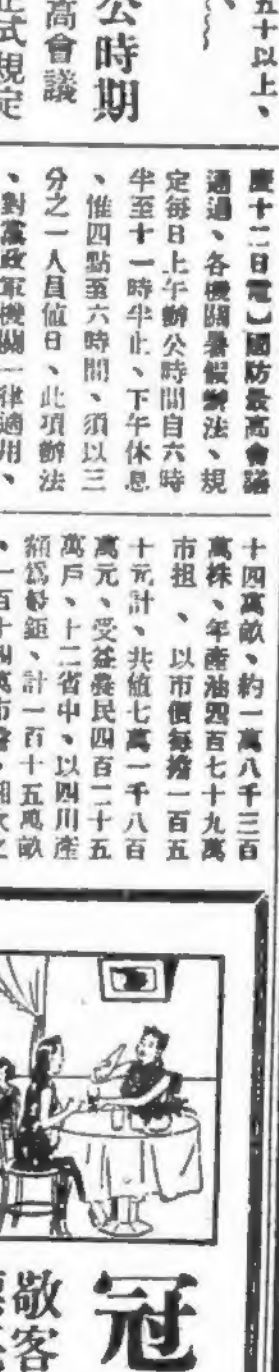 五十以上、
公時期
高會議
正式規定
慶十二日電】國防最高會議
通過、各機關暑假辦法、規
定每日上午辦公時間自六時
半至十一時半止、下午休息
、惟四點至六時間、須以三
分之一人員值日、此項辦法
、對黨政軍機關一律適用、
十四萬畝、約一萬八千三百
萬株、年產油四百七十九萬
市担、以市價每擔一百五
十元計、共值七萬一千八百
萬元、受益農民四百二十五
萬戶、十二省中、以四川產
額爲最鉅、計一百十五萬畝
、一百十四萬市擔、湖次之
冠
敬客